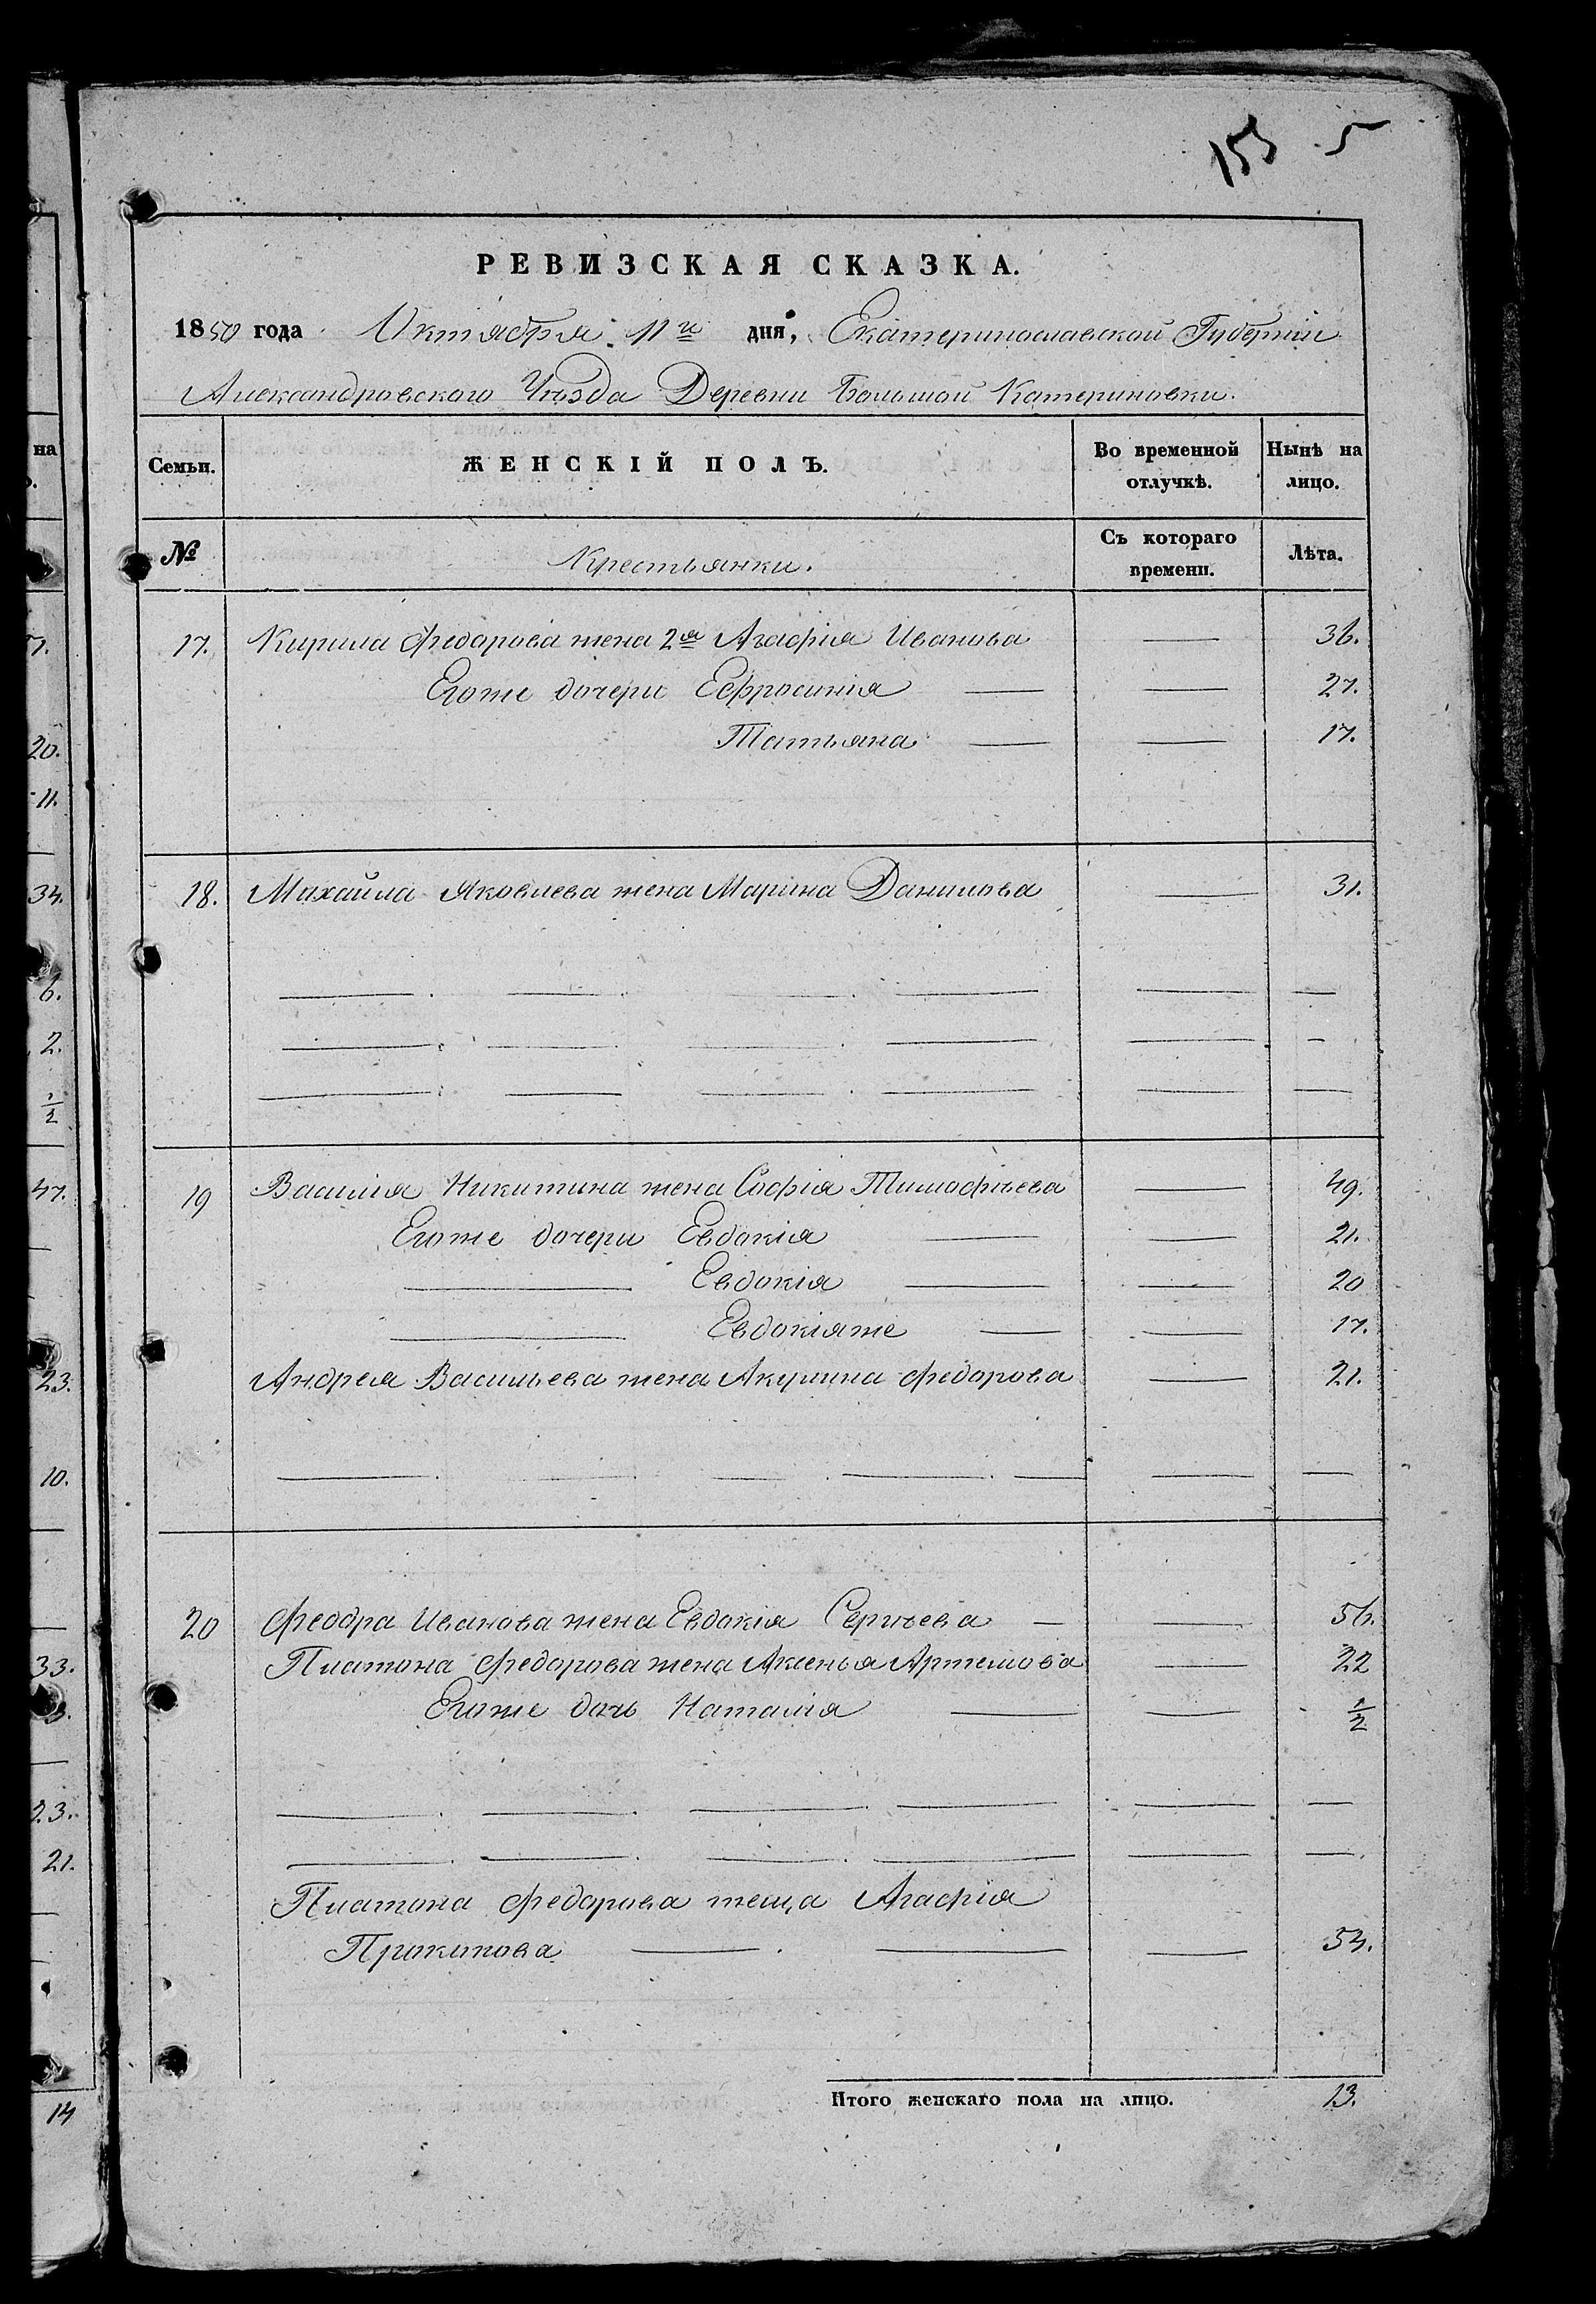 155 5
РЕВИЗСКАЯ СКАЗКА.
1850 года Октября 11го дня, Екатеринославской Губернии
Александровскаго Уѣзда Деревни Большой Катериновки.
Семьи. ЖЕНСКІЙ ПОЛЪ. Во временной отлучкѣ. Нынѣ на лицо.
№ Крестьянки. Съ котораго времени. Лѣта.
17. Кирила Федорова жена 2я Агафія Иванова — 36.
Егоже дочери Ефросинія — — 27.
Татьяна — — 17.
18. Михайла Яковлева жена Марина Данилова — 31.
19 Василія Никитина жена Софія Тимофѣева — 49.
Егоже дочери Евдокія — — 21.
— Евдокія — — 20
— Евдокіяже — — 17.
Андрея Васильева жена Акулина Федорова — 21.
20 Федора Иванова жена Евдокія Сергѣева — — 56.
Платона Федорова жена Аксенья Артемова — 22
Егоже дочь Наталія — — 1/2
Платона Федорова теща Агафія
Прокопова — — — 54.
Итого женскаго пола на лицо. 13.
на
7.
20.
11.
34.
6.
2.
1/2
47.
23.
10.
33.
23.
21.
14